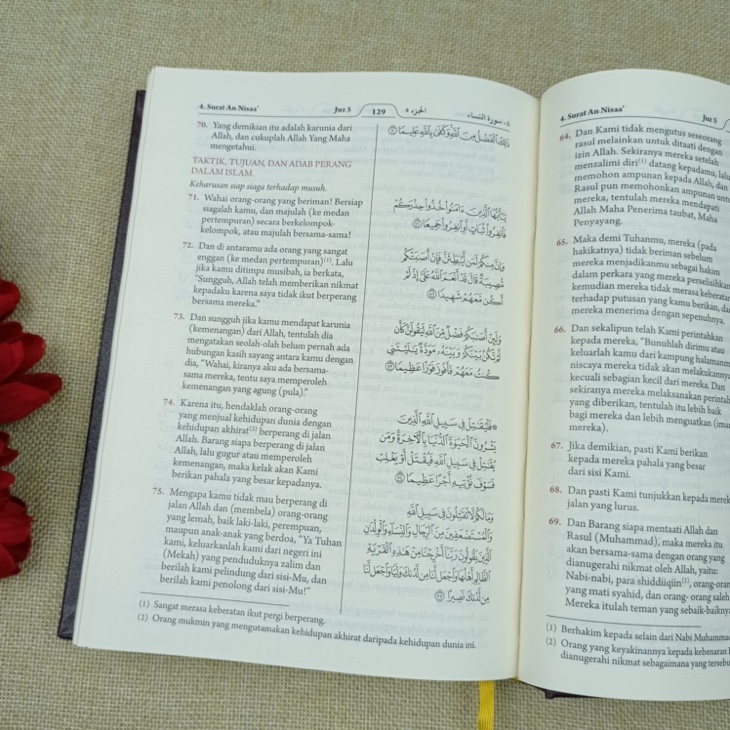 4. Surat An Nisaa' Juz 5 129 الجزء ٥ ٤- سورة النساء
70. Yang demikian itu adalah karunia dari
Allah, dan cukuplah Allah Yang Maha
mengetahui.
TAKTIK, TUJUAN, DAN ADAB PERANG
DALAM ISLAM.
Keharusan siap siaga terhadap musuh.
71. Wahai orang-orang yang beriman! Bersiap
siagalah kamu, dan majulah (ke medan
pertempuran) secara berkelompok-
kelompok, atau majulah bersama-sama!
72. Dan di antaramu ada orang yang sangat
enggan (ke medan pertempuran)(1). Lalu
jika kamu ditimpa musibah, ia berkata,
"Sungguh, Allah telah memberikan nikmat
kepadaku karena saya tidak ikut berperang
bersama mereka."
73. Dan sungguh jika kamu mendapat karunia
(kemenangan) dari Allah, tentulah dia
mengatakan seolah-olah belum pernah ada
hubungan kasih sayang antara kamu dengan
dia, "Wahai, kiranya aku ada bersama-
sama mereka, tentu saya memperoleh
kemenangan yang agung (pula)."
74. Karena itu, hendaklah orang-orang
yang menjual kehidupan dunia dengan
kehidupan akhirat(2) berperang di jalan
Allah. Barang siapa berperang di jalan
Allah, lalu gugur atau memperoleh
kemenangan, maka kelak akan Kami
berikan pahala yang besar kepadanya.
75. Mengapa kamu tidak mau berperang di
jalan Allah dan (membela) orang-orang
yang lemah, baik laki-laki, perempuan,
maupun anak-anak yang berdoa, "Ya Tuhan
kami, keluarkanlah kami dari negeri ini
(Mekah) yang penduduknya zalim dan
berilah kami pelindung dari sisi-Mu, dan
berilah kami penolong dari sisi-Mu!"
ذَٰلِكَ ٱلْفَضْلُ مِنَ ٱللَّهِ وَكَفَىٰ بِٱللَّهِ عَلِيمًا ٧٠
يَٰٓأَيُّهَا ٱلَّذِينَ ءَامَنُوا۟ خُذُوا۟ حِذْرَكُمْ
فَٱنفِرُوا۟ ثُبَاتٍ أَوِ ٱنفِرُوا۟ جَمِيعًا ٧١
وَإِنَّ مِنكُمْ لَمَن لَّيُبَطِّئَنَّ فَإِنْ أَصَٰبَتْكُم
مُّصِيبَةٌ قَالَ قَدْ أَنْعَمَ ٱللَّهُ عَلَىَّ إِذْ لَمْ
أَكُن مَّعَهُمْ شَهِيدًا ٧٢
وَلَئِنْ أَصَٰبَكُمْ فَضْلٌ مِّنَ ٱللَّهِ لَيَقُولَنَّ كَأَن
لَّمْ تَكُنۢ بَيْنَكُمْ وَبَيْنَهُۥ مَوَدَّةٌ يَٰلَيْتَنِى
كُنتُ مَعَهُمْ فَأَفُوزَ فَوْزًا عَظِيمًا ٧٣
۞ فَلْيُقَٰتِلْ فِى سَبِيلِ ٱللَّهِ ٱلَّذِينَ
يَشْرُونَ ٱلْحَيَوٰةَ ٱلدُّنْيَا بِٱلْءَاخِرَةِ وَمَن
يُقَٰتِلْ فِى سَبِيلِ ٱللَّهِ فَيُقْتَلْ أَوْ يَغْلِبْ
فَسَوْفَ نُؤْتِيهِ أَجْرًا عَظِيمًا ٧٤
وَمَا لَكُمْ لَا تُقَٰتِلُونَ فِى سَبِيلِ ٱللَّهِ
وَٱلْمُسْتَضْعَفِينَ مِنَ ٱلرِّجَالِ وَٱلنِّسَآءِ وَٱلْوِلْدَٰنِ
ٱلَّذِينَ يَقُولُونَ رَبَّنَآ أَخْرِجْنَا مِنْ هَٰذِهِ ٱلْقَرْيَةِ
ٱلظَّالِمِ أَهْلُهَا وَٱجْعَل لَّنَا مِن لَّدُنكَ وَلِيًّا وَٱجْعَل لَّنَا
مِن لَّدُنكَ نَصِيرًا ٧٥
(1) Sangat merasa keberatan ikut pergi berperang.
(2) Orang mukmin yang mengutamakan kehidupan akhirat daripada kehidupan dunia ini.
4. Surat An Nisaa' Juz 5
64. Dan Kami tidak mengutus seseorang
rasul melainkan untuk ditaati dengan
izin Allah. Sekiranya mereka setelah
menzalimi diri(1) datang kepadamu, lalu
memohon ampunan kepada Allah, dan
Rasul pun memohonkan ampunan untu
mereka, tentulah mereka mendapati
Allah Maha Penerima taubat, Maha
Penyayang.
65. Maka demi Tuhanmu, mereka (pada
hakikatnya) tidak beriman sebelum
mereka menjadikanmu sebagai hakim
dalam perkara yang mereka perselisihkan
kemudian mereka tidak merasa keberatan
terhadap putusan yang kamu berikan, da
mereka menerima dengan sepenuhnya.
66. Dan sekalipun telah Kami perintahkan
kepada mereka, "Bunuhlah dirimu atau
keluarlah kamu dari kampung halamanm
niscaya mereka tidak akan melakukanny
kecuali sebagian kecil dari mereka. Dan
sekiranya mereka melaksanakan perintah
yang diberikan, tentulah itu lebih baik
bagi mereka dan lebih menguatkan (iman
mereka).
67. Jika demikian, pasti Kami berikan
kepada mereka pahala yang besar
dari sisi Kami.
68. Dan pasti Kami tunjukkan kepada merek
jalan yang lurus.
69. Dan Barang siapa mentaati Allah dan
Rasul (Muhammad), maka mereka itu
akan bersama-sama dengan orang yang
dianugerahi nikmat oleh Allah, yaitu:
Nabi-nabi, para shiddiiqiin(2), orang-oran
yang mati syahid, dan orang- orang saleh
Mereka itulah teman yang sebaik-baikny
(1) Berhakim kepada selain dari Nabi Muhammad
(2) Orang yang keyakinannya kepada kebenaran
dianugerahi nikmat sebagaimana yang tersebu